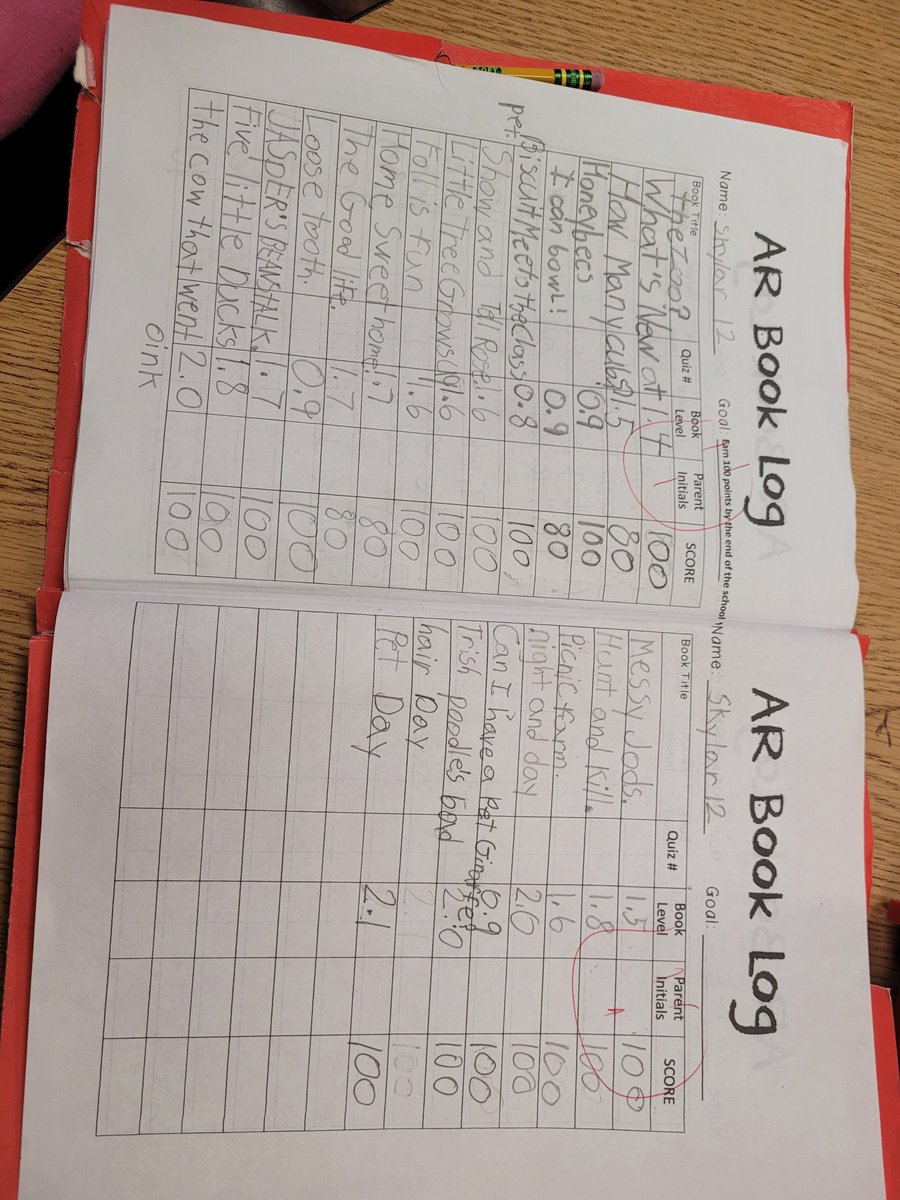 AR Book Log
Name: Skylar 12 Goal: Earn 100 points by the end of the school
Book Title Quiz # Book Level Parent Initials SCORE
the zoo?
What's New at 1.4 100
How Many cubs? 1.5 80
Honeybees 0.9 100
I can bowl! 0.9 80
Biscuit Meets the class 0.8 100
pet.
Show and Tell Rose. 1.6 100
Little Tree Grows up 1.6 100
Fall is Fun 1.6 100
Home Sweet home. 1.7 80
The Good life. 1.7 80
Loose tooth. 0.9 100
JASPER'S BEANSTALK. 1.7 100
Five little Ducks 1.8 100
the cow that went 2.0 100
oink
AR Book Log
Name: Skylar 12 Goal:
Book Title Quiz # Book Level Parent Initials SCORE
Messy 1.5 100
Hunt and Kill. 1.8 100
Picnic farm. 1.6 100
night and day 2.0 100
Can I have a pet Giraffe? 0.9 100
Trish poodle's bad 2.0 100
hair Day 2. 100
Pet Day 2.1 100